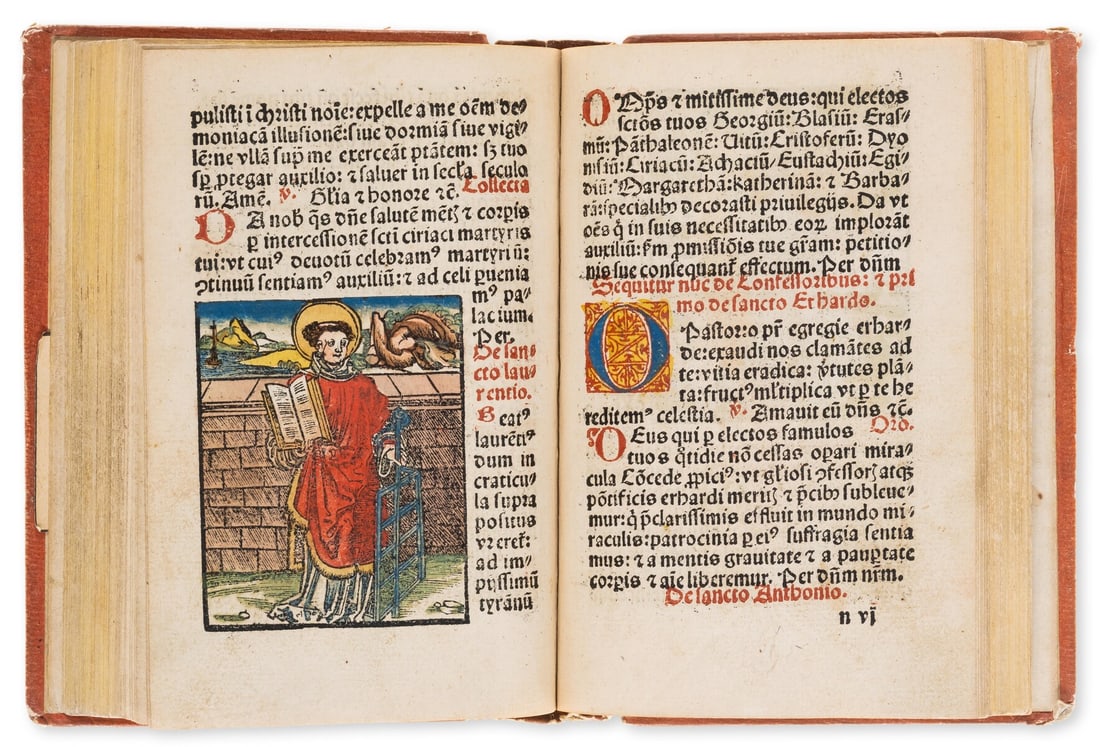 pulisti ī christi noīe: expelle a me oēm de⸗
moniacā illusionē: siue dormiā siue vigi⸗
lē: ne vllā sup̄ me exerceāt ptātem: sꝫ tuo
sp̄ ꝓtegar auxilio: ⁊ saluer in secl̄a seculo
rū. Amē. ℣. Gl̄ia ⁊ honore ⁊c̄. Collecta
DA nob̄ q̄s dn̄e salutē mētꝫ ⁊ corp̄is
ꝑ intercessionē sctī ciriaci martyris
tui: vt cuiꝰ deuotū celebramꝰ martyriū:
ꝯtinuū sentiamꝰ auxiliū: ⁊ ad celi ꝑuenia
mꝰ pa⸗
lacium.
Per.
De san⸗
cto lau⸗
rentio.
Beatꝰ
laurētiꝰ
dum in
craticu⸗
la supra
positus
vreret̄:
ad im⸗
pyssimū
tyrānū
Omp̄s ⁊ mitissime deus: qui electos
sctōs tuos Georgiū: Blasiū: Eras⸗
mū: Pāthaleonē: Uitū: Cristoferū: Dyo
nisiū: Ciriacū: Achaciū: Eustachiū: Egi⸗
diū: Margarethā: katherinā: ⁊ Barba⸗
rā: specialibꝰ decorasti priuilegijs. Da vt
oēs q̄ in suis necessitatibꝰ eoꝝ implorāt
auxiliū: ẜm ꝓmissiōis tue grām: petitio⸗
nis sue consequant̄ effectum. Per dn̄m
Sequitur nūc de Confessoribus: ⁊ pri
mo de sancto Erhardo.
O Pastor: o pr̄ egregie erhar⸗
de: exaudi nos clamātes ad
te: vitia eradica: v̄tutes plā⸗
ta: fructꝰ ml̄tiplica vt ꝑ te he
reditemꝰ celestia. ℣. Amauit eū dn̄s ⁊c̄.
Oro.
DEus qui ꝑ electos famulos
tuos q̄tidie nō cessas opari mira
cula Cōcede ꝓpiciꝰ: vt gl̄iosi ꝯfessorꝫ atqꝫ
pōtificis erhardi meritꝫ ⁊ p̄cibꝰ subleue⸗
mur: q̄ p̄clarissimis effluit in mundo mi⸗
raculis: patrocinia ꝑ eiꝰ suffragia sentia
mus: ⁊ a mentis grauitate ⁊ a pauꝑtate
corp̄is ⁊ aīe liberemur. Per dn̄m nr̄m.
De sancto Anthonio.
n vj